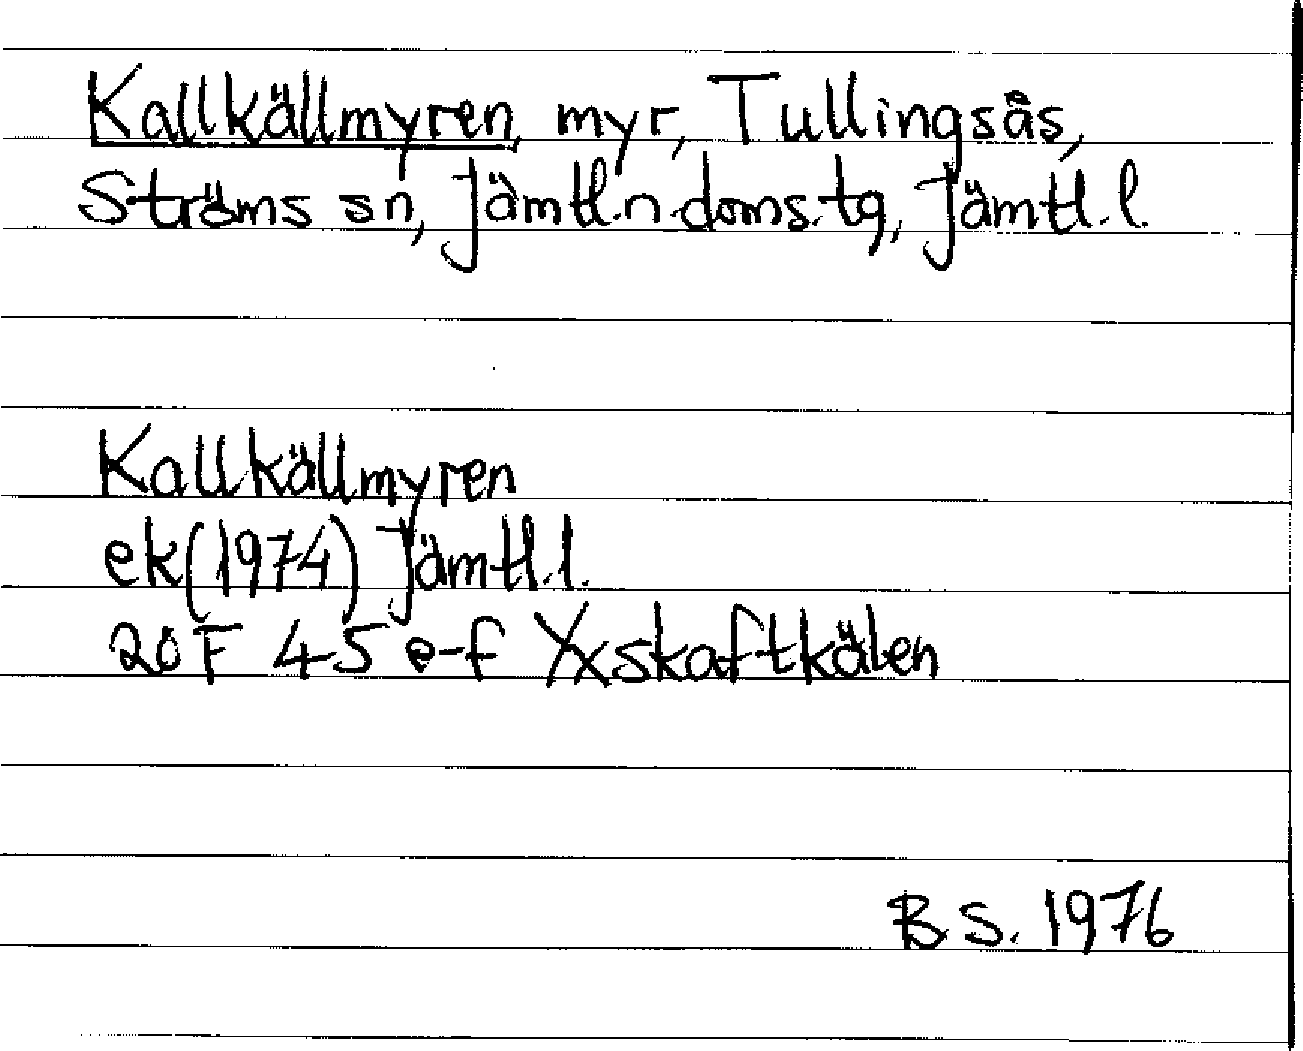 Kallkällmyren, myr, Tullingsås,
Ströms sn, Jämtl.n.doms.tg, Jämtl.l.
Kallkällmyren
ek(1974) Jämtl.l.
20F 4-5 e-f Yxskaftkälen
B.S. 1976